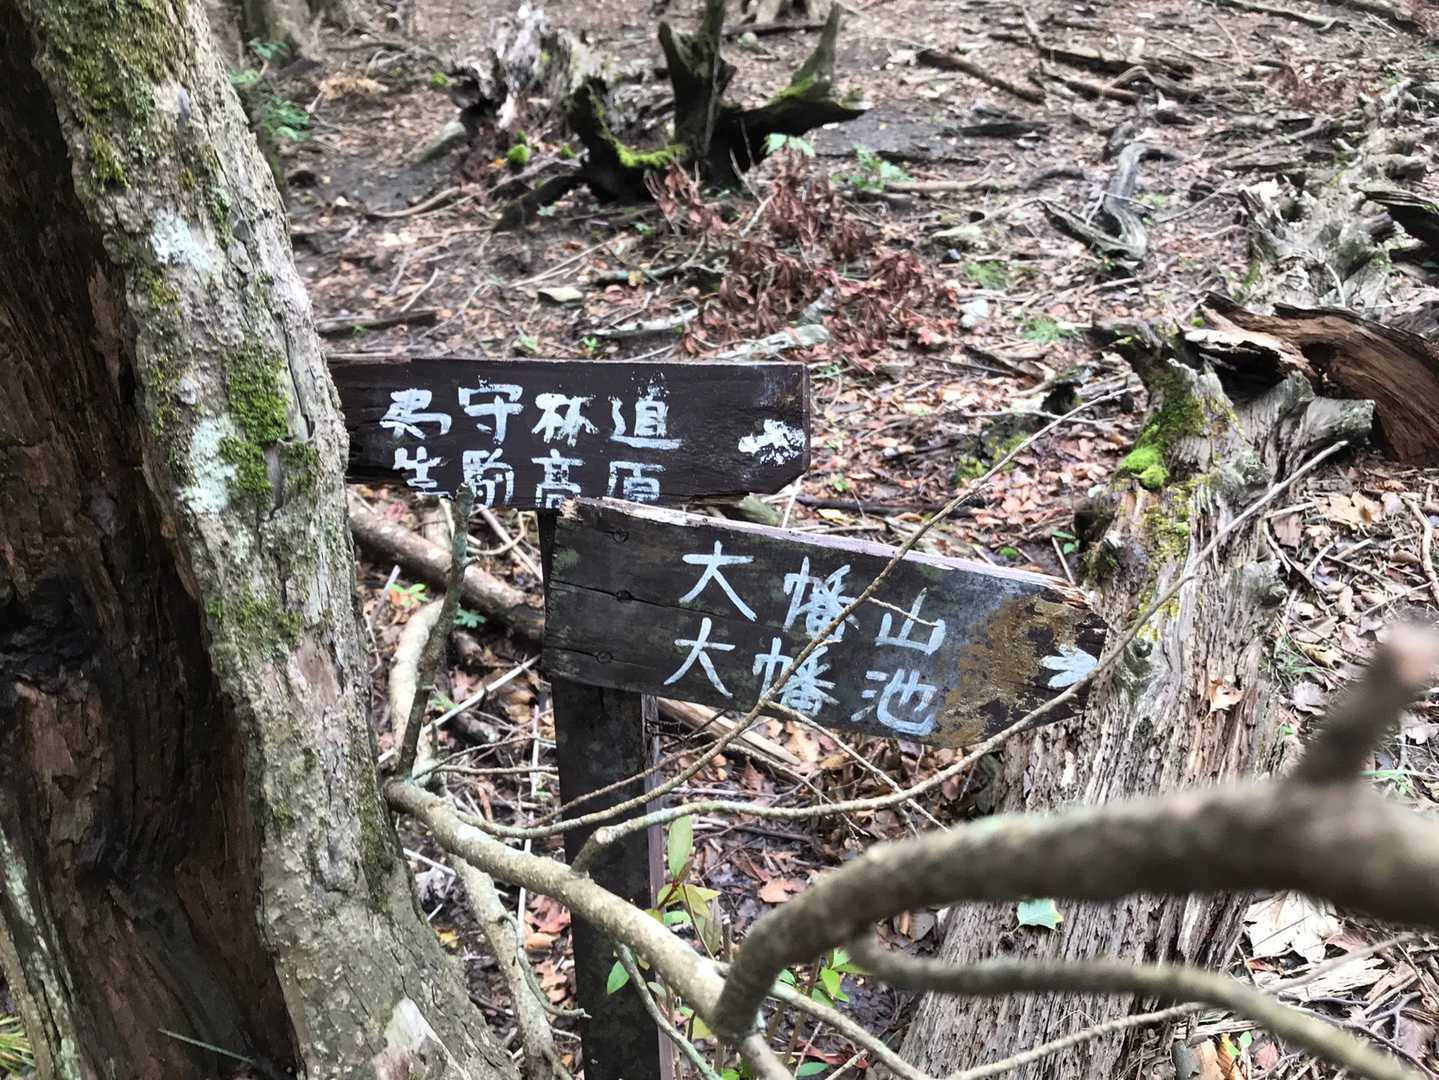 夷守林道
生駒高原
大幡山
大幡池